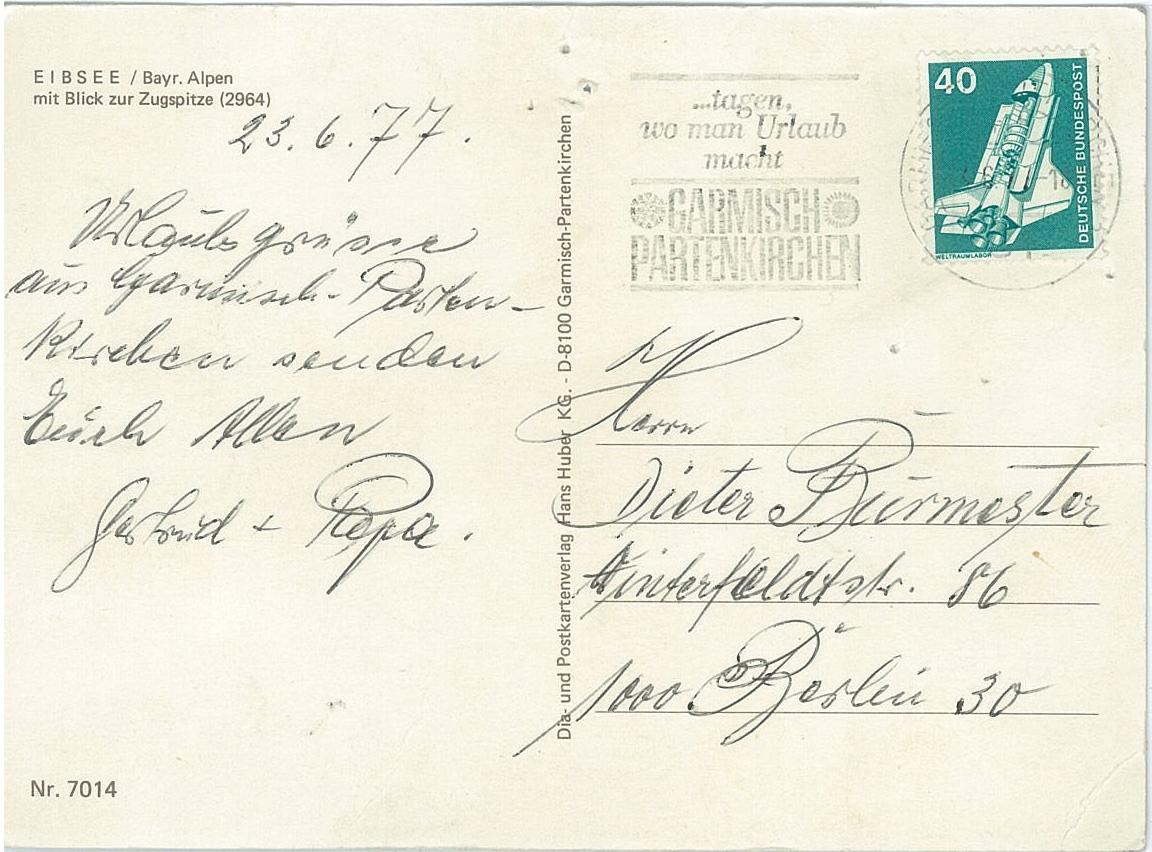 EIBSEE / Bayr. Alpen
mit Blick zur Zugspitze (2964)
23.6.77.
Urlaubsgrüsse
aus Garmisch-Parten-
kirchen senden
Euch Allen
Gertrud + Papa.
Nr. 7014
Dia- und Postkartenverlag Hans Huber KG. - D-8100 Garmisch-Partenkirchen
...tagen,
wo man Urlaub
macht
GARMISCH
PARTENKIRCHEN
40
DEUTSCHE BUNDESPOST
WELTRAUMLABOR
Herrn
Dieter Burmester
Winterfeldtstr. 86
1000 Berlin 30